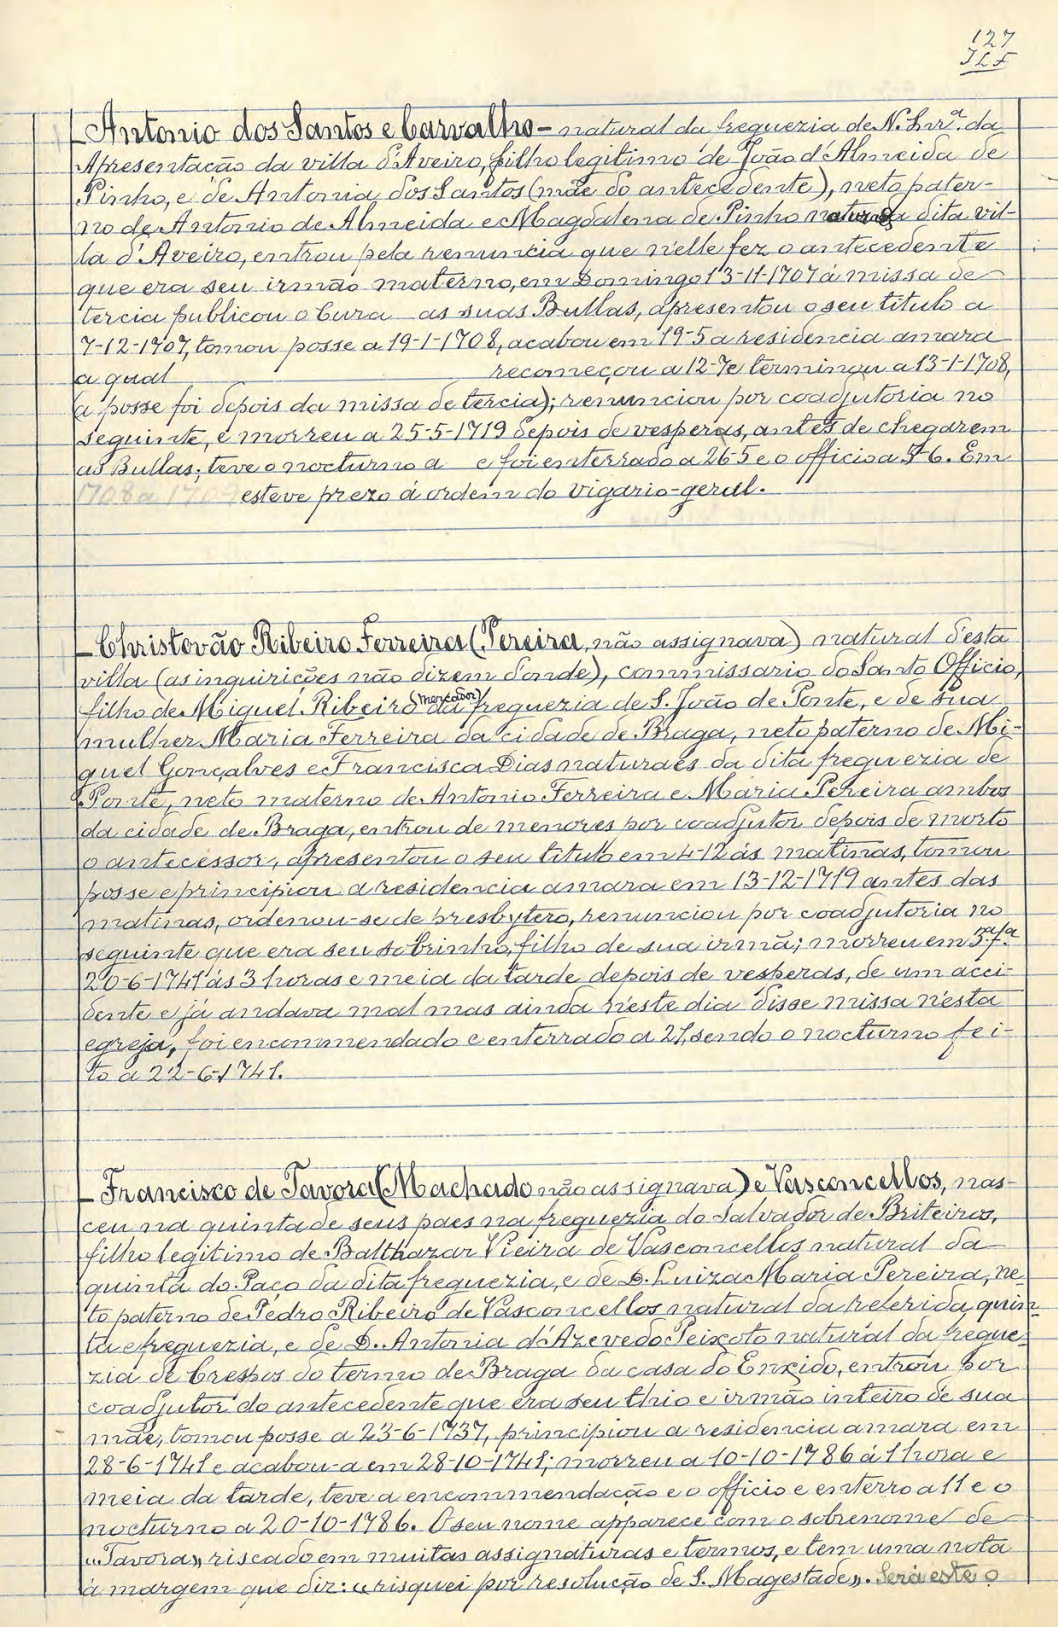 127
JLF
Antonio dos Santos e Carvalho - natural da freguezia de N. Snrª. da
Apresentação da villa d'Aveiro, filho legitimo de João d'Almeida de
Pinho, e de Antonia dos Santos (mãe do antecedente), neto pater-
no de Antonio de Almeida e Magdalena de Pinho naturaes da dita vil-
la d'Aveiro, entrou pela renuncia que nelle fez o antecedente
que era seu irmão materno, em Domingo 13-11-1707 á missa de
tercia publicou o Cura as suas Bullas, apresentou o seu titulo a
7-12-1707, tomou posse a 19-1-1708, acabou em 19-5 a residencia amara
a qual recomeçou a 12-7 e terminou a 13-1-1708,
(a posse foi depois da missa de tercia); renunciou por coadjutoria no
seguinte, e morreu a 25-5-1719 depois de vesperas, antes de chegarem
as Bullas; teve o nocturno a e foi enterrado a 26-5 e o officio a 5-6. Em
1708 a 1709 esteve prezo á ordem do vigario-geral.
Christovão Ribeiro Ferreira (Pereira, não assignava) natural desta
villa (as inquirições não dizem donde), commissario do Santo Officio,
filho de Miguel Ribeiro (mercador) da freguezia de S. João de Ponte, e de sua
mulher Maria Ferreira da cidade de Braga, neto paterno de Mi-
guel Gonçalves e Francisca Dias naturaes da dita freguezia de
Ponte, neto materno de Antonio Ferreira e Maria Pereira ambos
da cidade de Braga, entrou de menores por coadjutor depois de morto
o antecessor, apresentou o seu titulo em 4-12 ás matinas, tomou
posse e principiou a residencia amara em 13-12-1719 antes das
matinas, ordenou-se de presbytero, renunciou por coadjutoria no
seguinte que era seu sobrinho, filho de sua irmã; morreu em 3ª fª
20-6-1741 ás 3 horas e meia da tarde depois de vesperas, de um acci-
dente e já andava mal mas ainda neste dia disse missa n'esta
egreja, foi encommendado e enterrado a 21, sendo o nocturno fei-
to a 22-6-1741.
Francisco de Tavora (Machado não assignava) e Vasconcellos, nas-
ceu na quinta de seus paes na freguezia do Salvador de Briteiros,
filho legitimo de Balthazar Vieira de Vasconcellos natural da
quinta do Paço da dita freguezia, e de D. Luiza Maria Pereira, ne-
to paterno de Pedro Ribeiro de Vasconcellos natural da referida quin-
ta e freguezia, e de D. Antonia d'Azevedo Peixoto natural da fregue-
zia de Crespos do termo de Braga da casa do Enxido, entrou por
coadjutor do antecedente que era seu thio e irmão inteiro de sua
mãe, tomou posse a 23-6-1737, principiou a residencia amara em
28-6-1741 e acabou-a em 28-10-1741; morreu a 10-10-1786 á 1 hora e
meia da tarde, teve a encommendação e o officio e enterro a 11 e o
nocturno a 20-10-1786. O seu nome apparece com o sobrenome de
"Tavora" riscado em muitas assignaturas e termos, e tem uma nota
á margem que diz: "risquei por resolução de S. Magestade". Será este o